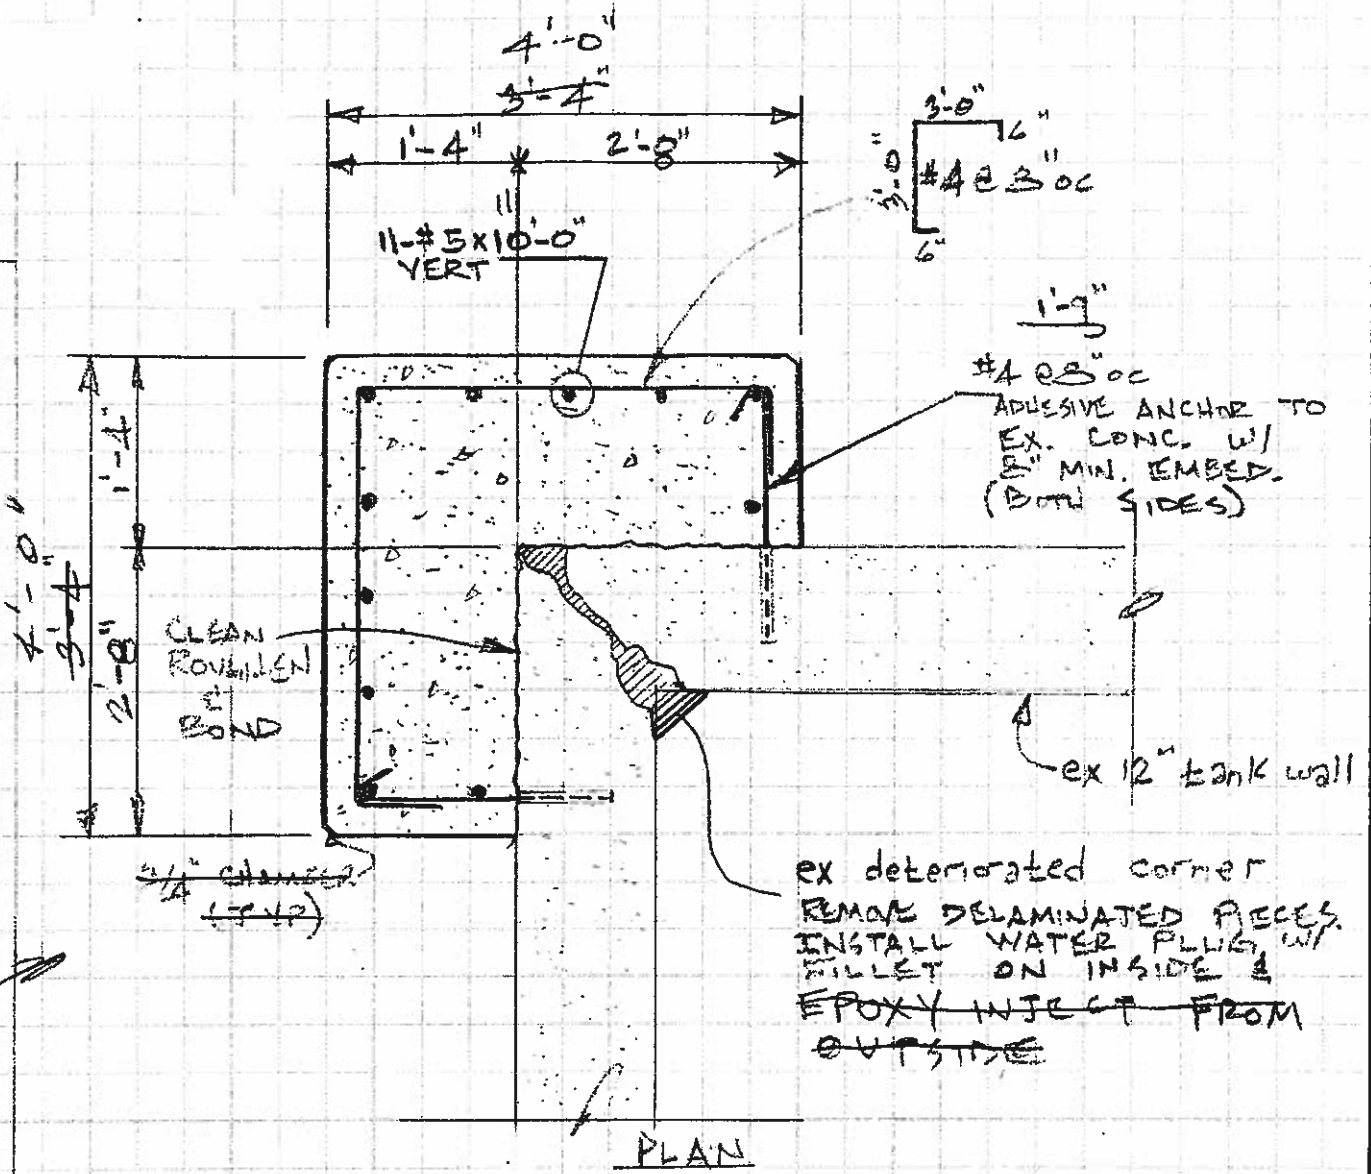 4'-0"
3'-4"
1'-4"
2'-8"
3'-0"
6"
3'-0"
#4 @ 8" oc
6"
11
11-#5x10'-0"
VERT
1'-9"
#4 @ 8" oc
ADHESIVE ANCHOR TO
EX. CONC. W/
8" MIN. EMBED.
(BOTH SIDES)
1'-4"
4'-0"
3'-4"
2'-8"
CLEAN
ROUGHEN
&
BOND
ex 12" tank wall
3/4" CHAMFER
(TYP)
ex deteriorated corner
REMOVE DELAMINATED PIECES.
INSTALL WATER PLUG W/
FILLET ON INSIDE &
EPOXY INJECT FROM
OUTSIDE
PLAN